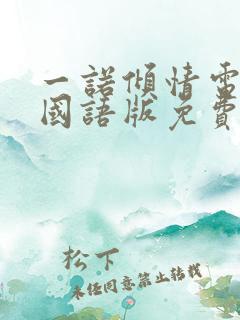 一諾傾情電
國語版免費
松下
未经同意禁止转载